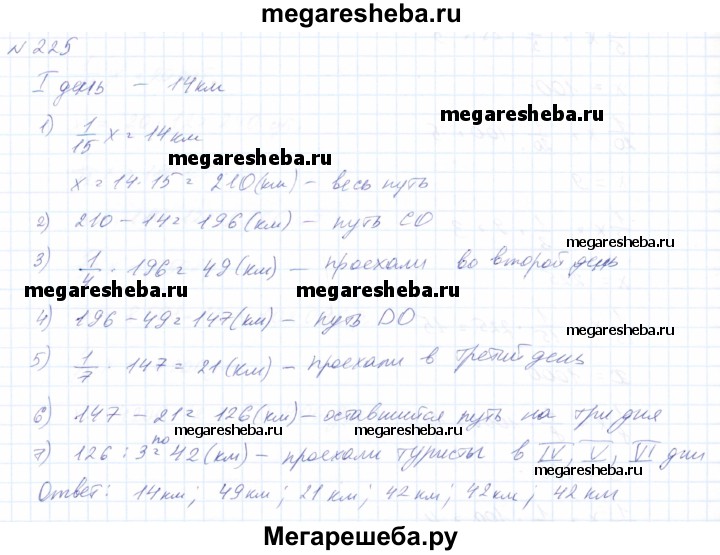 megaresheba.ru
N 225
I день – 14 км
megaresheba.ru
1) 1/15 x = 14 км
megaresheba.ru
x = 14 · 15 = 210 (км) – весь путь
2) 210 – 14 = 196 (км) – путь СО
megaresheba.ru
3) 1/4 · 196 = 49 (км) – проехали во второй день
megaresheba.ru megaresheba.ru
4) 196 – 49 = 147 (км) – путь DO
megaresheba.ru
5) 1/7 · 147 = 21 (км) – проехали в третий день
6) 147 – 21 = 126 (км) – оставшийся путь на три дня
megaresheba.ru megaresheba.ru
7) 126 : 3 = по 42 (км) – проехали туристы в IV, V, VI дни
megaresheba.ru
Ответ: 14 км; 49 км; 21 км; 42 км; 42 км; 42 км
Мегарешеба.ру